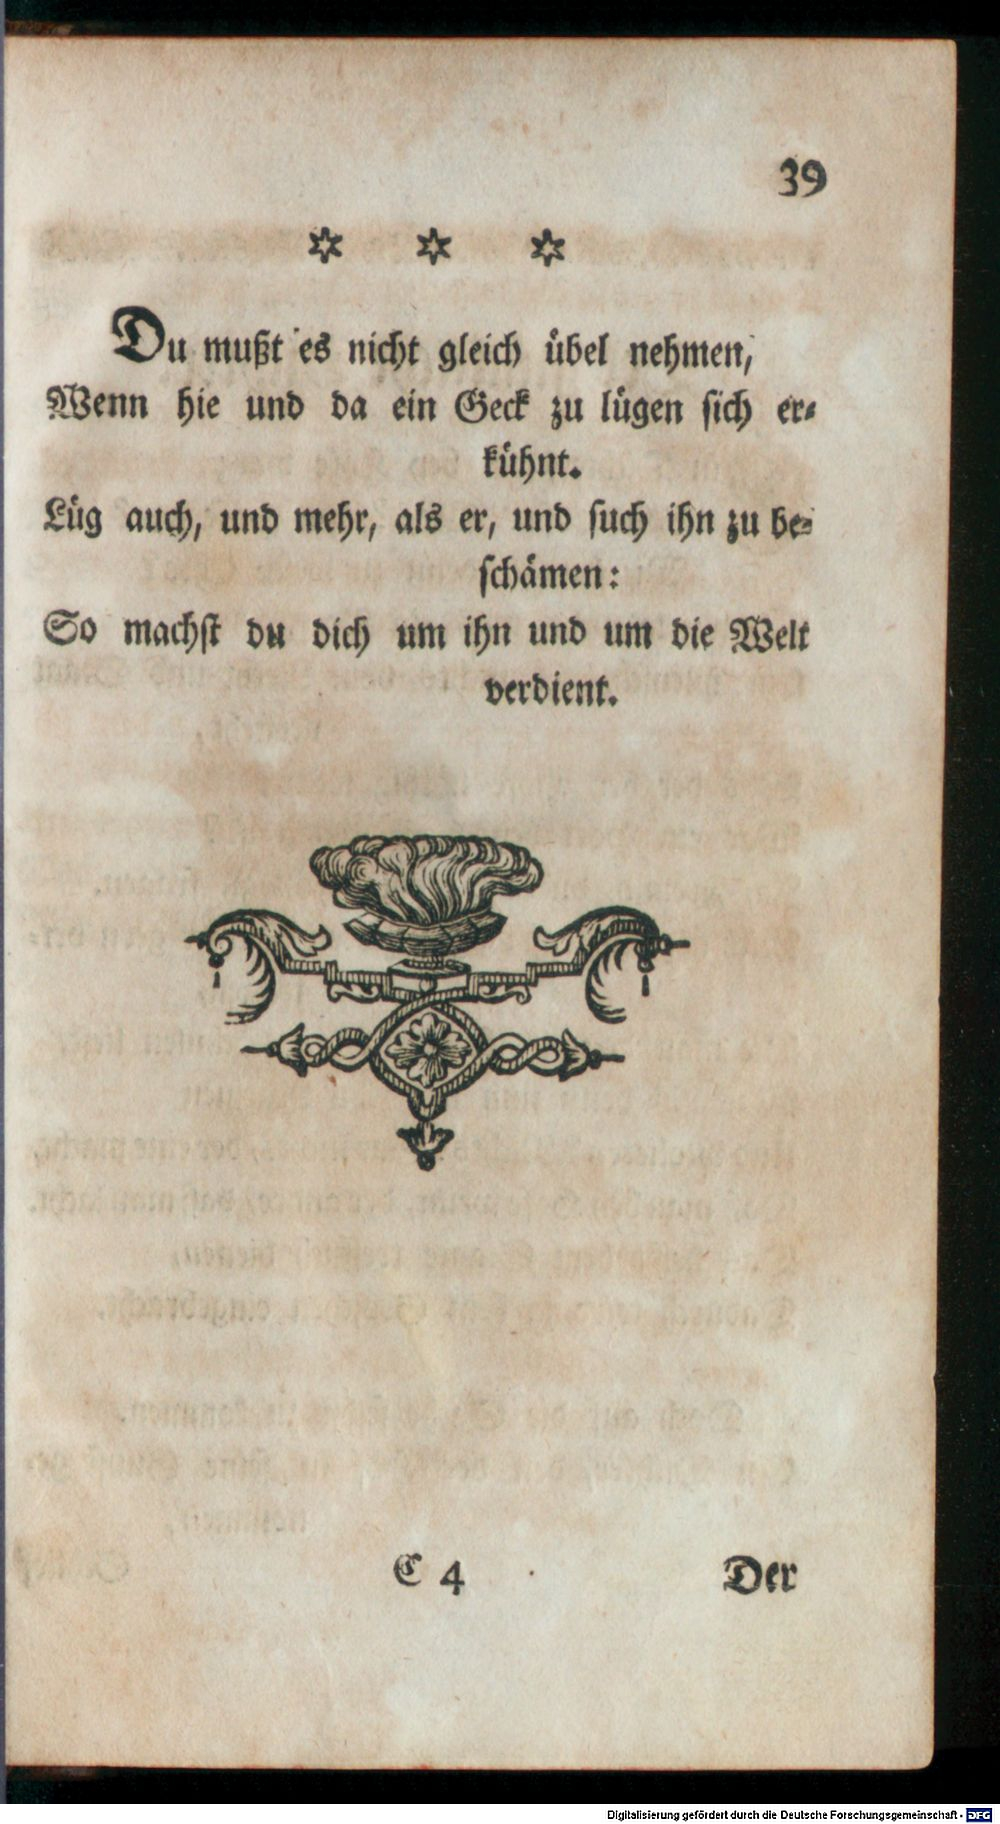 39
* * *
Du mußt es nicht gleich übel nehmen,
Wenn hie und da ein Geck zu lügen sich er-
kühnt.
Lüg auch, und mehr, als er, und such ihn zu be-
schämen:
So machst du dich um ihn und um die Welt
verdient.
C 4 Der
Digitalisierung gefördert durch die Deutsche Forschungsgemeinschaft - DFG